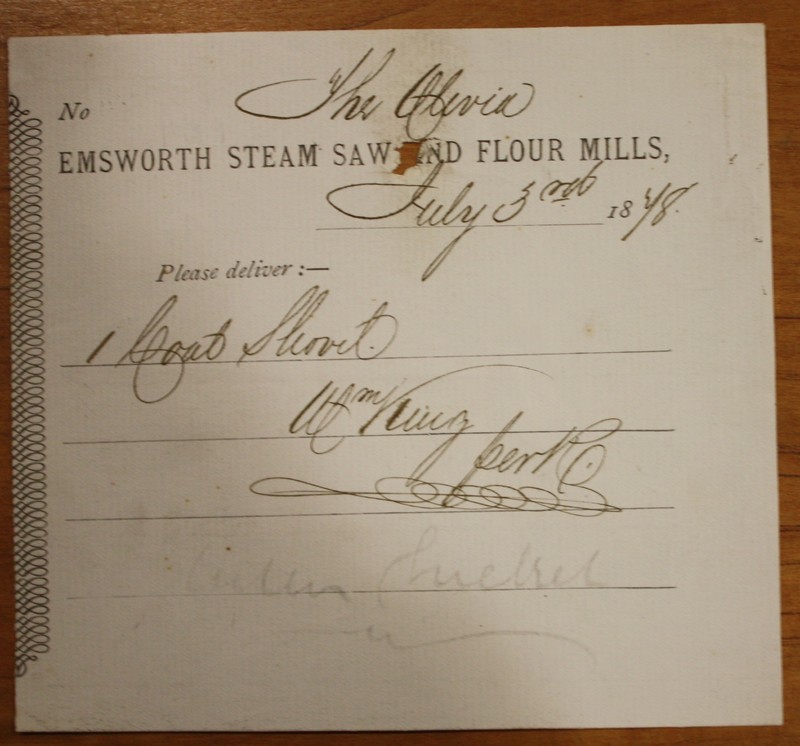 No The Olivia
EMSWORTH STEAM SAW AND FLOUR MILLS,
July 3rd 1878.
Please deliver :—
1 Coal Shovel.
Wm King
per R.